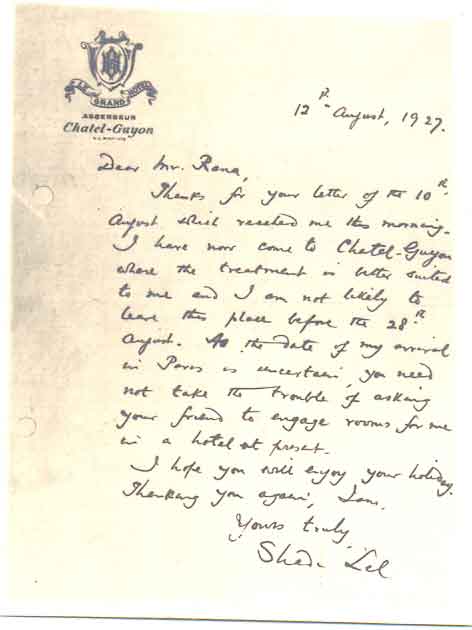 LE GRAND HOTEL
ASCENSEUR
Chatel-Guyon
12th August, 1927.
Dear Mr. Rana,
Thanks for your letter of the 10th
August which reached me this morning.
I have now come to Chatel-Guyon
where the treatment is better suited
to me and I am not likely to
leave this place before the 28th
August. As the date of my arrival
in Paris is uncertain, you need
not take the trouble of asking
your friend to engage rooms for me
in a hotel at present.
I hope you will enjoy your holiday.
Thanking you again, I am,
Yours truly,
Shadi Lal